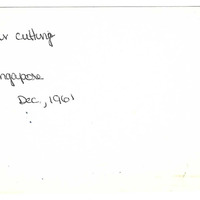 ur cutting
ngapore
Dec., 1961